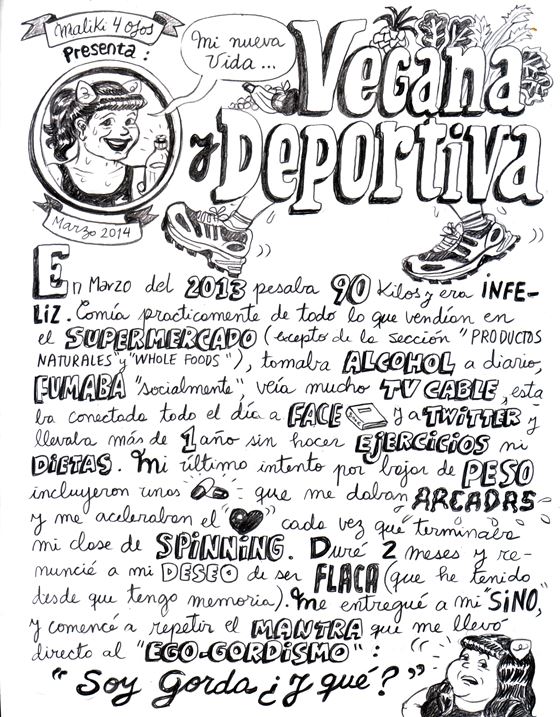 Maliki 4 ojos
Presenta:
Mi nueva
Vida...
Vegana
y Deportiva
Marzo 2014
En Marzo del 2013 pesaba 90 Kilos y era INFE-
LIZ. Comía practicamente de todo lo que vendían en
el SUPERMERCADO (excepto de la sección "PRODUCTOS
NATURALES" y "WHOLE FOODS"), tomaba ALCOHOL a diario,
FUMABA "socialmente", veía mucho TV CABLE, esta
ba conectada todo el día a FACE y a TWITTER y
llevaba más de 1 año sin hacer EJERCICIOS ni
DIETAS. Mi último intento por bajar de PESO
incluyeron unas que me daban ARCADAS
y me aceleraban el cada vez que terminaba
mi clase de SPINNING. Duré 2 meses y re-
nuncié a mi DESEO de ser FLACA (que he tenido
desde que tengo memoria). Me entregué a mi "SINO,"
y comencé a repetir el MANTRA que me llevó
directo al "EGO-GORDISMO":
"Soy Gorda ¿Y qué?"